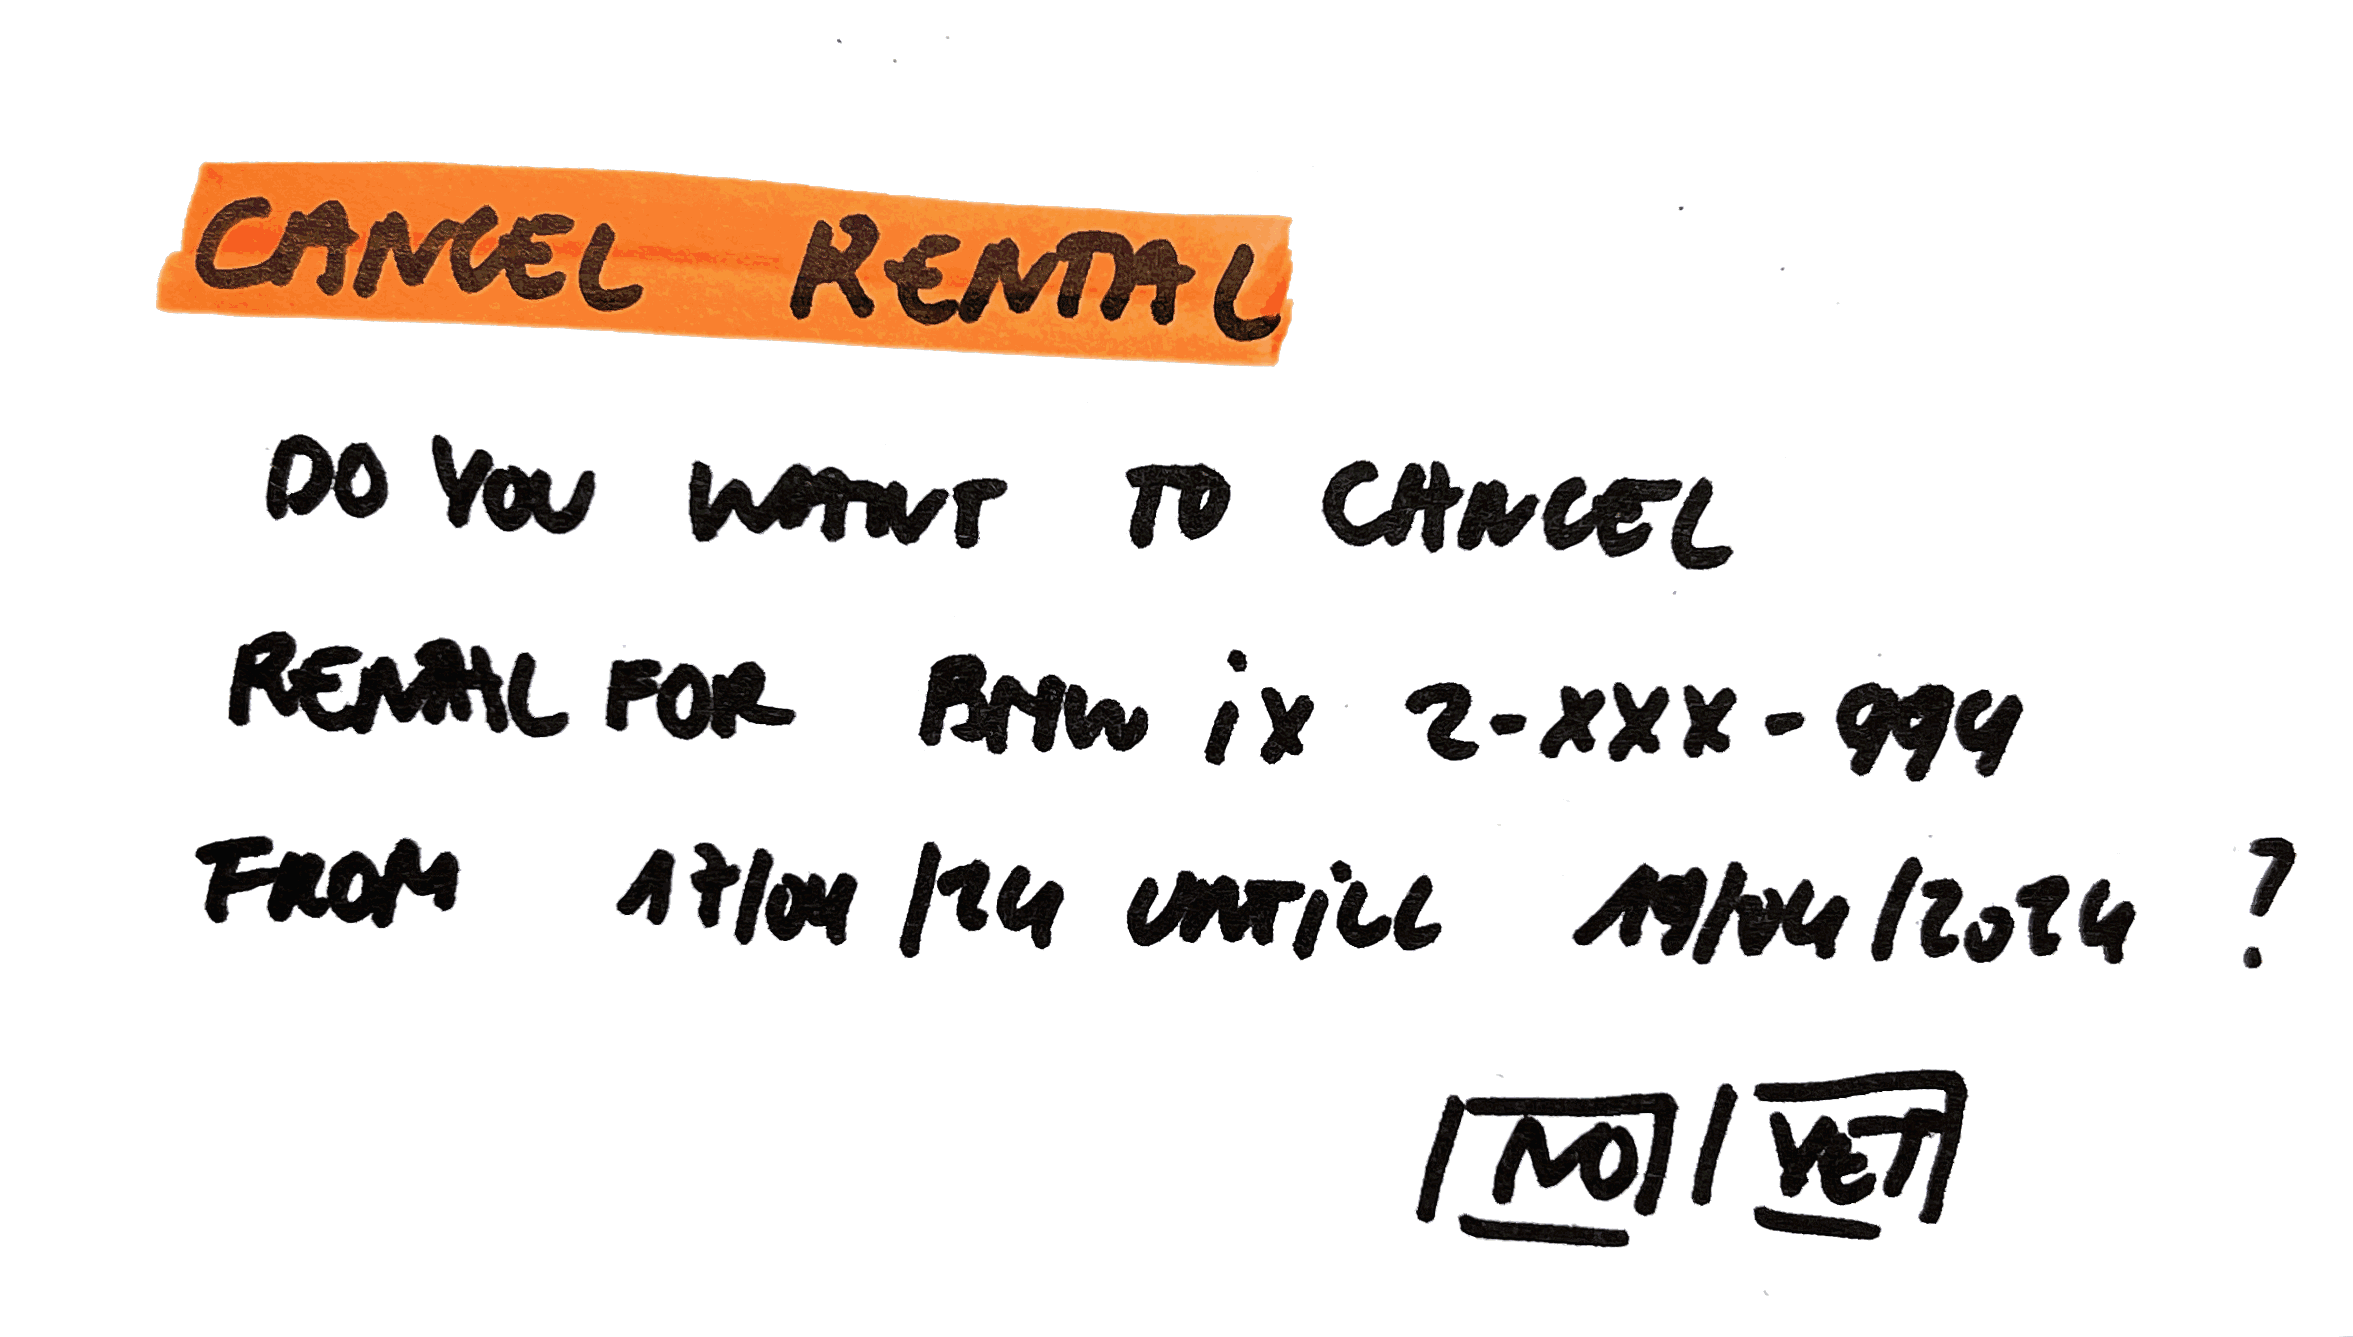 CANCEL RENTAL
DO YOU WANT TO CANCEL
RENTAL FOR BMW iX 2-XXX-999
FROM 17/04/24 UNTILL 19/04/2024 ?
NO YES